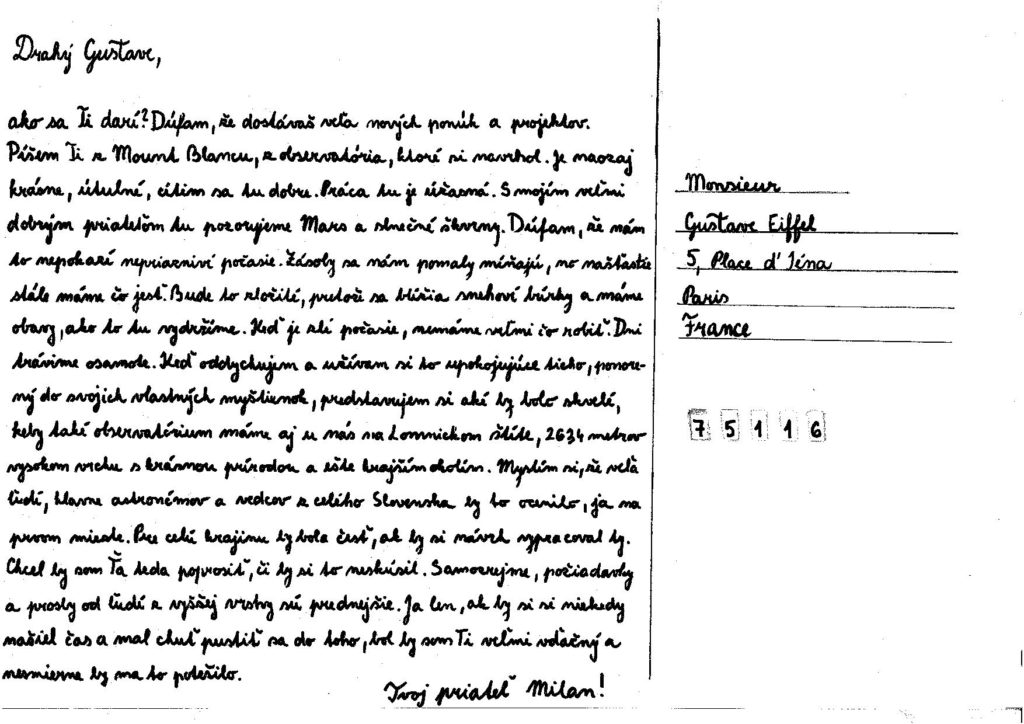 Drahý Gustave,
ako sa Ti darí? Dúfam, že dostávaš veľa nových ponúk a projektov.
Píšem Ti z Mount Blancu, z observatória, ktoré si navrhol. Je naozaj
krásne, útulné, cítim sa tu dobre. Práca tu je úžasná. S mojím veľmi
dobrým priateľom tu pozorujeme Mars a slnečné škvrny. Dúfam, že nám
to nepokazí nepriaznivé počasie. Zásoby sa nám pomaly míňajú, no našťastie
stále máme čo jesť. Bude to zložité, pretože sa blížia snehové búrky a máme
obavy, ako to tu vydržíme. Keď je zlé počasie, nemáme veľmi čo robiť. Dni
trávime osamote. Keď oddychujem a užívam si to upokojujúce ticho, ponore-
ný do svojich vlastných myšlienok, predstavujem si aké by bolo skvelé,
keby také observatórium máme aj u nás na Lomnickom štíte, 2634 metrov
vysokom vrchu s krásnou prírodou a ešte krajším okolím. Myslím si, že veľa
ľudí, hlavne astronómov a vedcov z celého Slovenska by to ocenilo, ja na
prvom mieste. Pre celú krajinu by bola česť, ak by si návrh vypracoval ty.
Chcel by som Ťa teda poprosiť, či by si to neskúsil. Samozrejme, požiadavky
a prosby od ľudí z vyššej vrstvy sú prednejšie. Ja len, ak by si si niekedy
našiel čas a mal chuť pustiť sa do toho, bol by som Ti veľmi vďačný a
nesmierne by ma to potešilo.
Tvoj priateľ Milan!
Monsieur
Gustave Eiffel
5, Place d'Iéna
Paris
France
75116